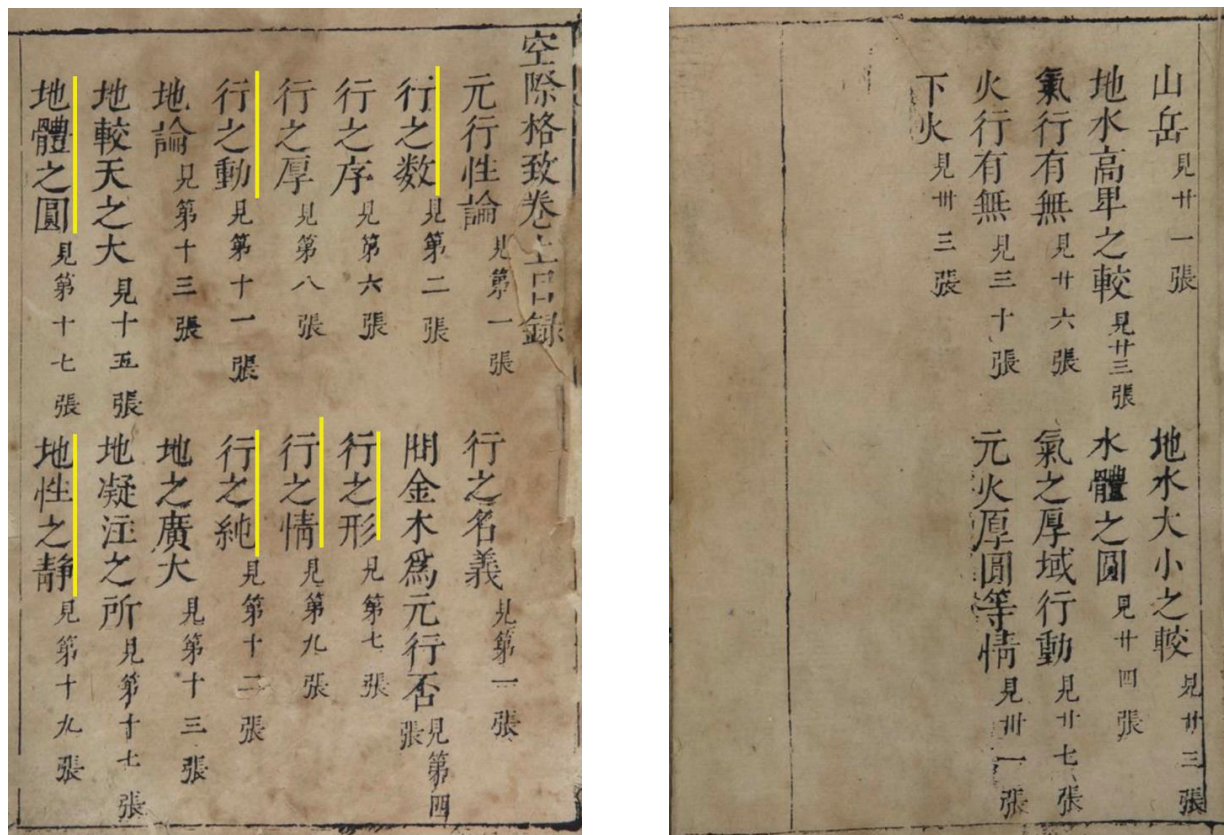 空際格致卷上目録
元行性論 見第一張 行之名義 見第一張
行之数 見第二張 問金木爲元行否 見第四張
行之序 見第六張 行之形 見第七張
行之厚 見第八張 行之情 見第九張
行之動 見第十一張 行之純 見第十二張
地論 見第十三張 地之廣大 見第十三張
地較天之大 見十五張 地凝注之所 見第十七張
地體之圓 見第十七張 地性之静 見第十九張
山岳 見廿一張 地水大小之較 見廿三張
地水高卑之較 見廿三張 水體之圓 見廿四張
氣行有無 見廿六張 氣之厚域行動 見廿七張
火行有無 見三十張 元火厚圓等情 見卅一張
下火 見卅三張